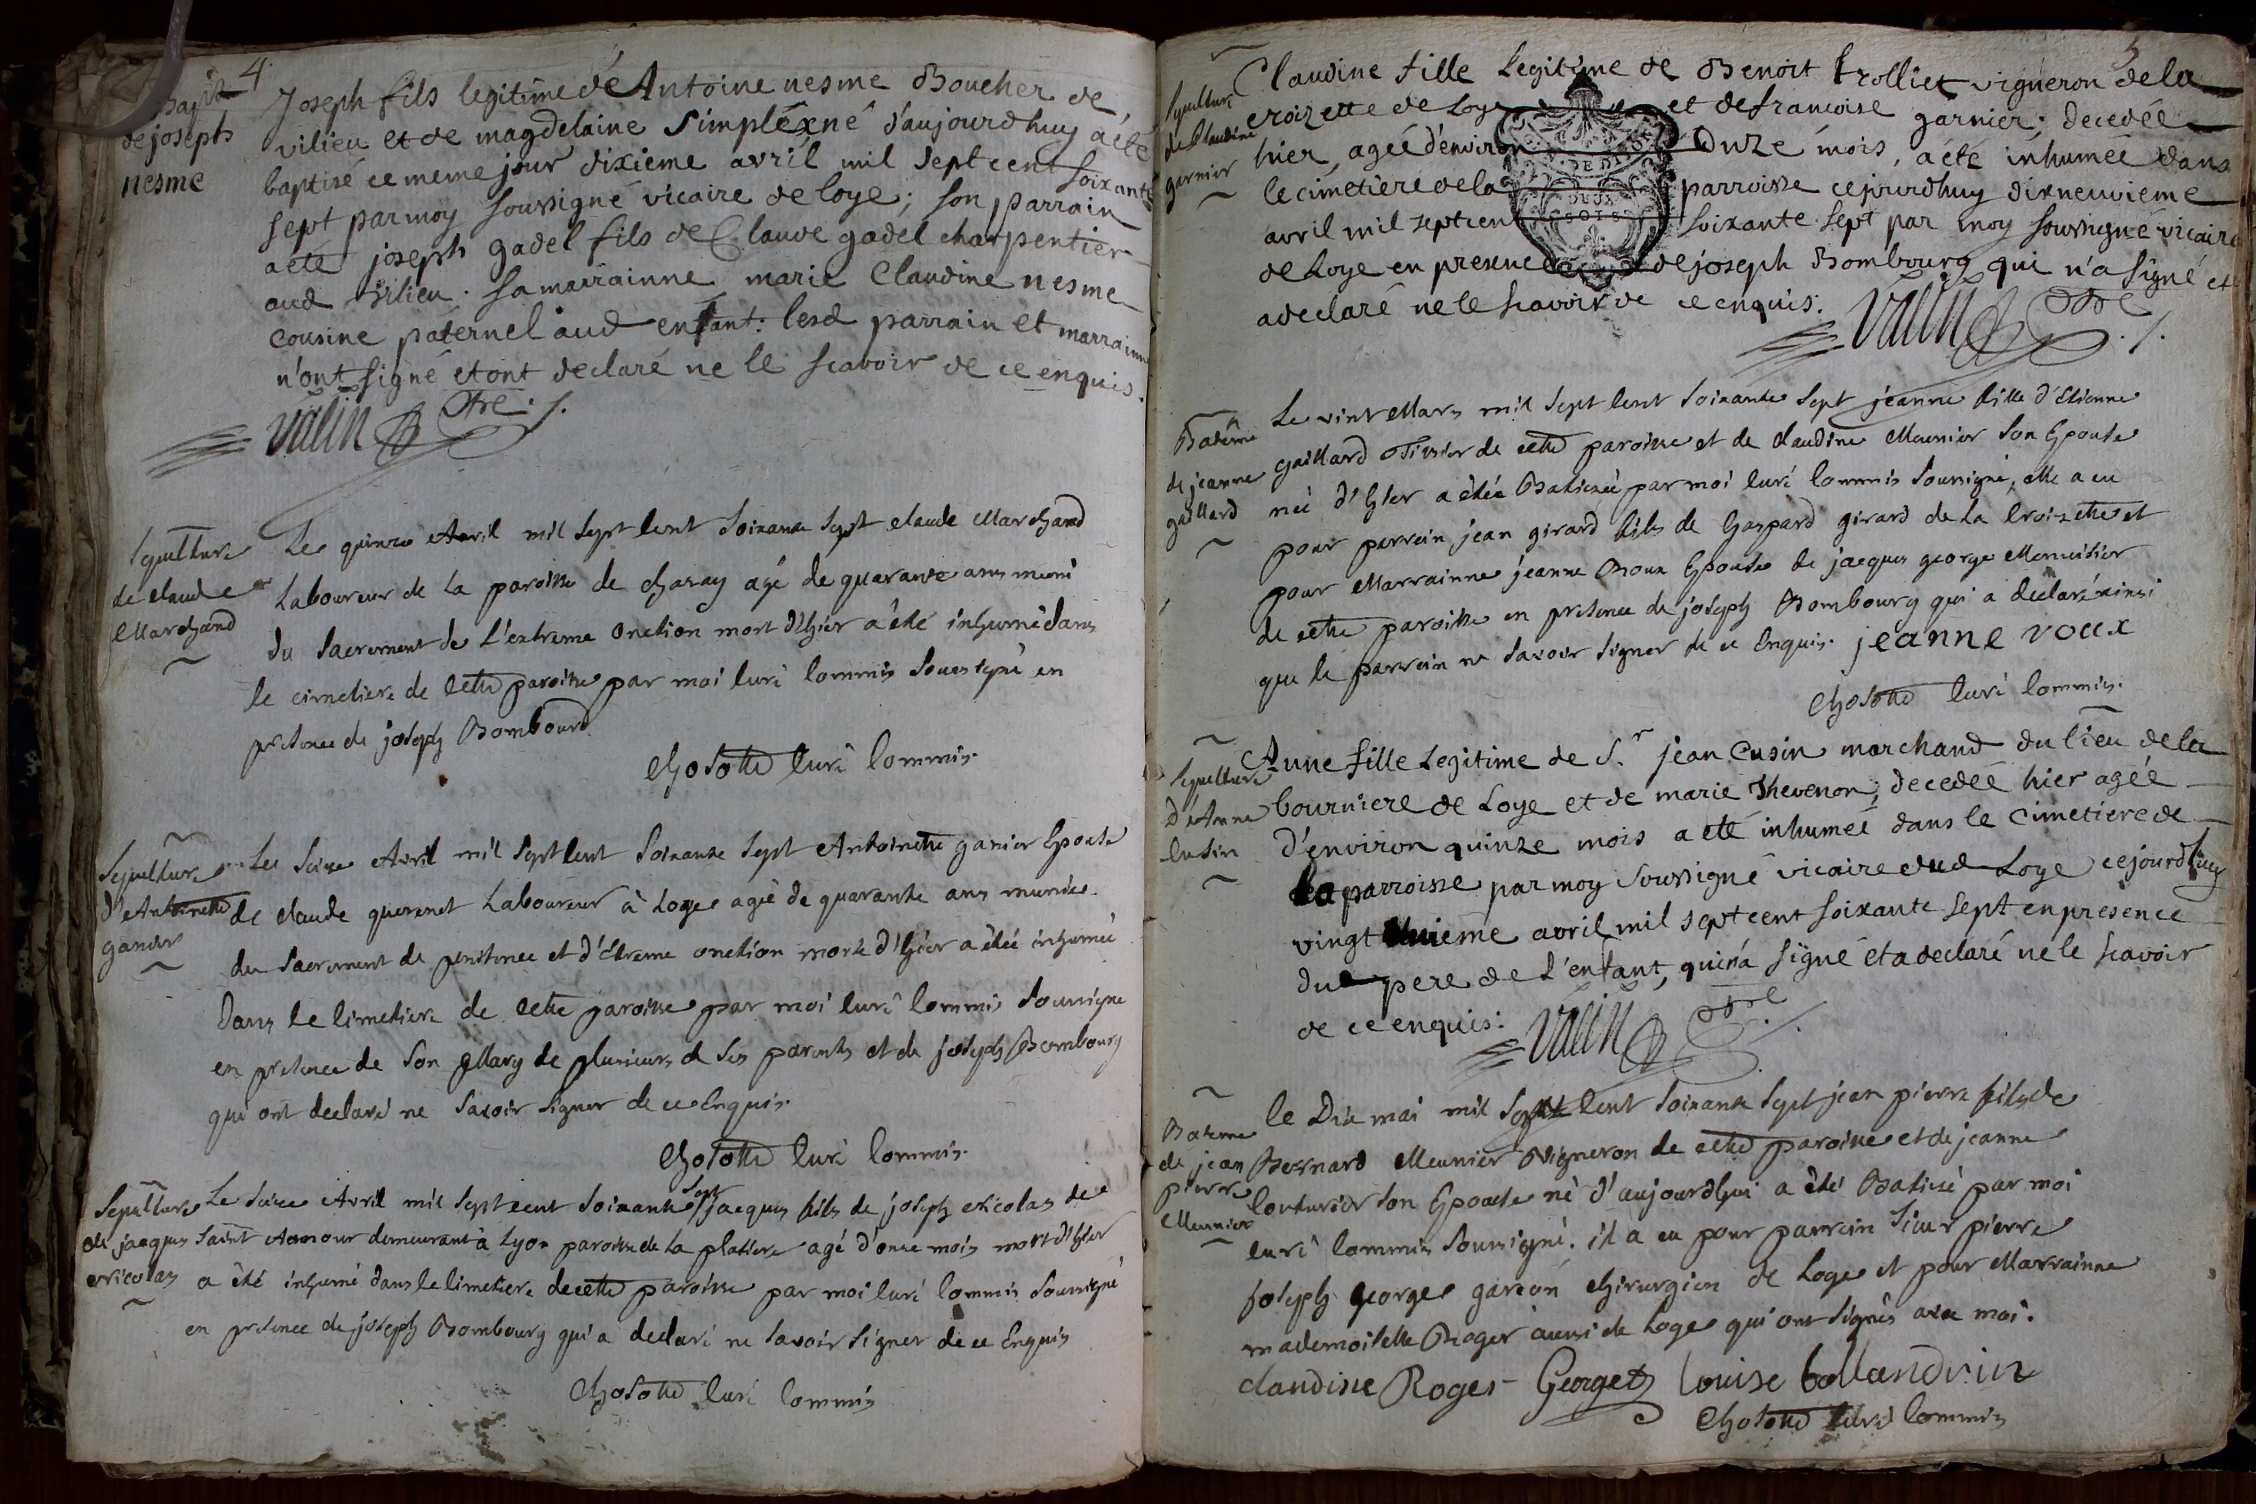 4
Bapt
de joseph
nesme
Joseph fils legitime de Antoine nesme Boucher de
vilieu et de magdelaine Simplex né d'aujourdhuy a été
baptisé ce meme jour dixieme avril mil sept cent soixante
sept par moy soussigné vicaire de loye; son parrain
a été joseph gadel fils de Claude gadel charpentier
aud vilieu. sa marrainne marie Claudine nesme
cousine paternel aud enfant: lesd parrain et marrainne
n'ont signé et ont declaré ne le scavoir de ce enquis.
valin ptre
Sepulture
de claude
Marchand
Le quinze Avril mil sept cent soixante sept claude Marchand
Laboureur de la paroisse de charay agé de quarante ans muni
du sacrement de l'extreme onction mort d'hier a été inhumé dans
le cimetiere de cette paroisse par moi curé commis soussigné en
presence de joseph Bombourd
Chosotte curé commis.
Sepulture
d'Antoinette
ganier
Le seize Avril mil sept cent soixante sept Antoinette ganier Epouse
de claude quesenet Laboureur à Loye agée de quarante ans munie
du sacrement de penitence et d'extreme onction morte d'hier a étée inhumée
Dans le cimetiere de cette paroisse par moi curé commis soussigné
en presence de son Mary de plusieurs de ses parents et de joseph Bombourg
qui ont declaré ne savoir signer de ce Enquis.
Chosotte curé commis.
Sepulture
de jacques
nicolas
Le seize Avril mil sept cent soixante sept jacques fils de joseph nicolas de
saint Amour demeurant à Lyon paroisse de la platiere agé d'onze mois mort d'hier
a été inhumé dans le cimetiere de cette paroisse par moi curé commis soussigné
en presence de joseph Bombourg qui a declaré ne savoir signer de ce Enquis
Chosotte curé commis
5
Sepulture
de Claudine
garnier
Claudine fille Legitime de Benoit trolliet vigneron de la
croizette de Loye et de francoise garnier; decedée
hier, agée d'environ onze mois, a été inhumée dans
le cimetiere de la parroisse cejourdhuy dixneuvieme
avril mil sept cent soixante sept par moy soussigné vicaire
de Loye en presence de joseph Bombourg qui n'a signé et
a declaré ne le scavoir de ce enquis.
DE DIX
DEUX
SOLS
valin ptre
Batême
de jeanne
gaillard
Le vint Mars mil sept cent soixante sept jeanne fille d'Etienne
gaillard Tissier de cette paroisse et de claudine Meunier son Epouse
née d'hier a étée Batisée par moi curé commis soussigné, elle a eu
pour parrein jean girard fils de Gaspard girard de la Croizette et
pour Marrainne jeanne Voux Epouse de jacques george Menuisier
de cette paroisse en presence de joseph Bombourg qui a declaré ainsi
que le parrein ne savoir signer de ce Enquis. jeanne voux
Chosotte curé commis.
Sepulture
d'Anne
Cusin
Anne fille Legitime de Sr jean Cusin marchand du lieu de la
bourniere de Loye et de marie Thevenon; decedée hier agée
d'environ quinze mois a eté inhumée dans le cimetiere de
la parroisse par moy soussigné vicaire dud Loye cejourdhuy
vingt unieme avril mil sept cent soixante sept en presence
du pere de l'enfant, qui n'a signé et a declaré ne le scavoir
de ce enquis:
valin ptre
Bateme
de jean
pierre
Meunier
le Dix mai mil sept cent soixante sept jean pierre fils de
Bernard Meunier Vigneron de cette paroisse et de jeanne
Couturier son Epouse né d'aujourdhui a été Batisé par moi
curé commis soussigné. il a eu pour parrein sieur pierre
joseph george garcon chirurgien de Loye et pour Marrainne
mademoiselle Roger aussi de Loye qui ont signés avec moi.
claudine Roger Georget Louise bollandrin
Chosotte curé commis